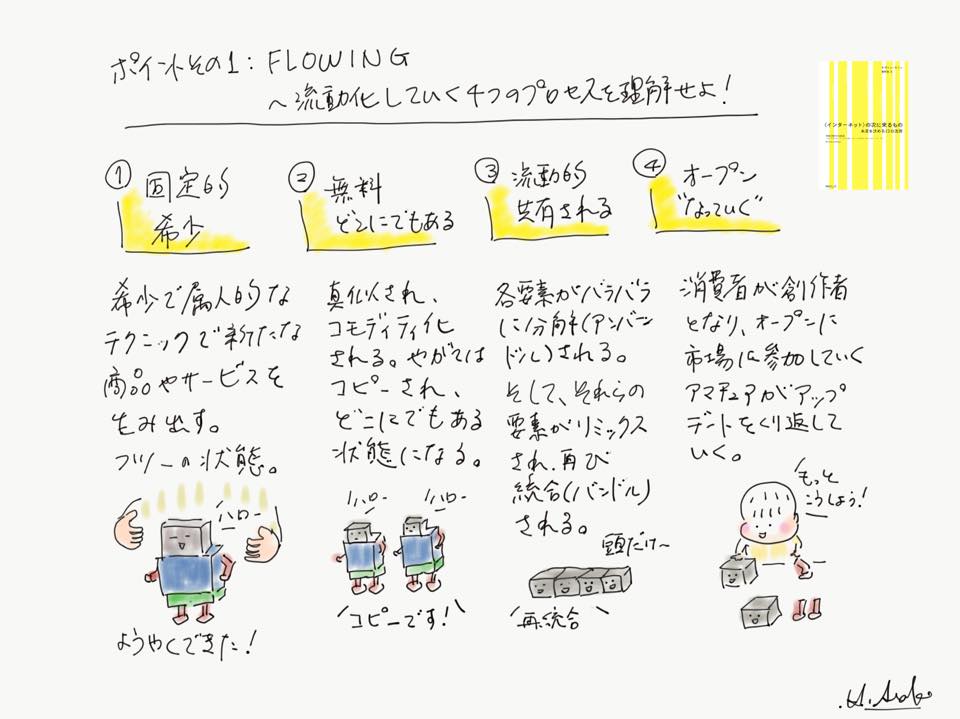 ポイントその1: FLOWING
〜流動化していく4つのプロセスを理解せよ!
〈インターネット〉の次に来るもの
未来を決める12の法則
① 固定的
希少
希少で属人的な
テクニックで新たな
商品やサービスを
生み出す。
フツーの状態。
ハロー
ようやくできた!
② 無料
どこにでもある
真似され、
コモディティ化
される。やがては
コピーされ、
どこにでもある
状態になる。
ハロー ハロー
コピーです!
③ 流動的
共有される
各要素がバラバラ
に分解(アンバン
ドル)される。
そして、それらの
要素がリミックス
され、再び
統合(バンドル)
される。
頭だけ〜
再統合
④ オープン
"なっていく"
消費者が創作者
となり、オープンに
市場に参加していく
アマチュアがアップ
デートをくり返して
いく。
もっと
こうしよう!